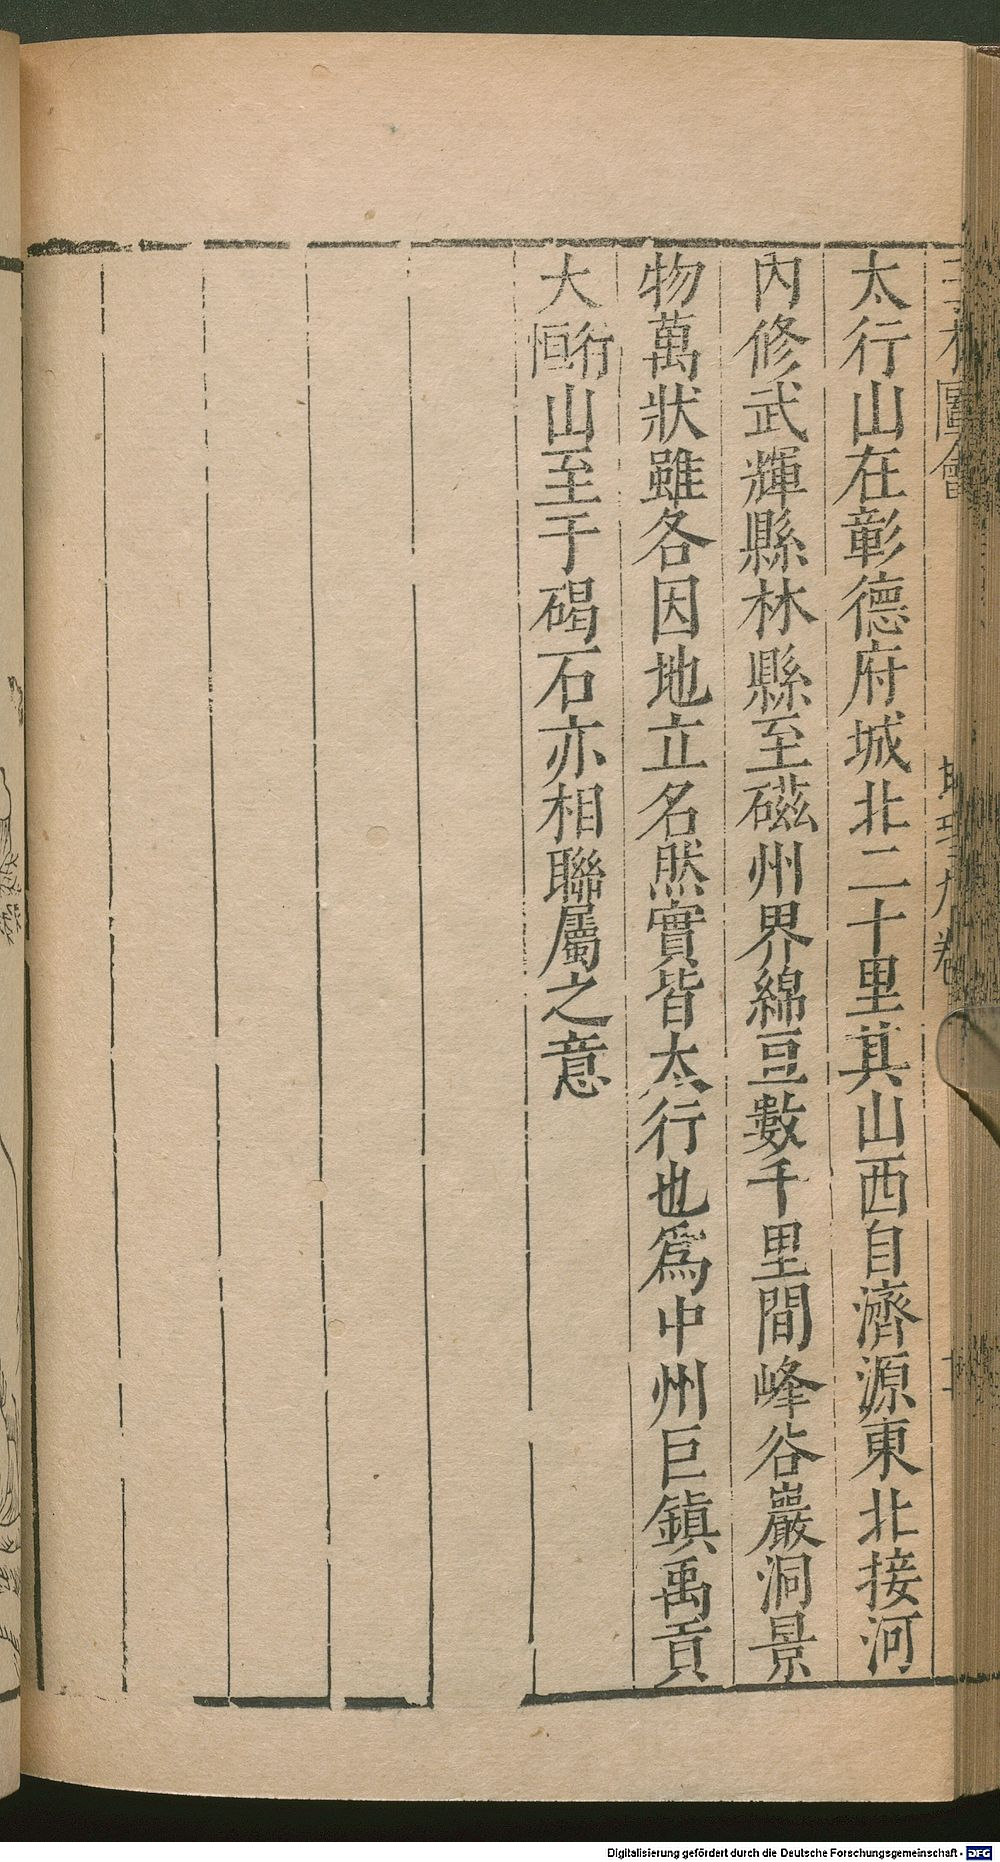 太行山在彰德府城北二十里其山西自濟源東北接河
內修武輝縣林縣至磁州界綿亘數千里間峰谷巖洞景
物萬狀雖各因地立名然實皆太行也爲中州巨鎮禹貢
大行恒山至于碣石亦相聯屬之意
圖會
九卷
Digitalisierung gefördert durch die Deutsche Forschungsgemeinschaft - DFG